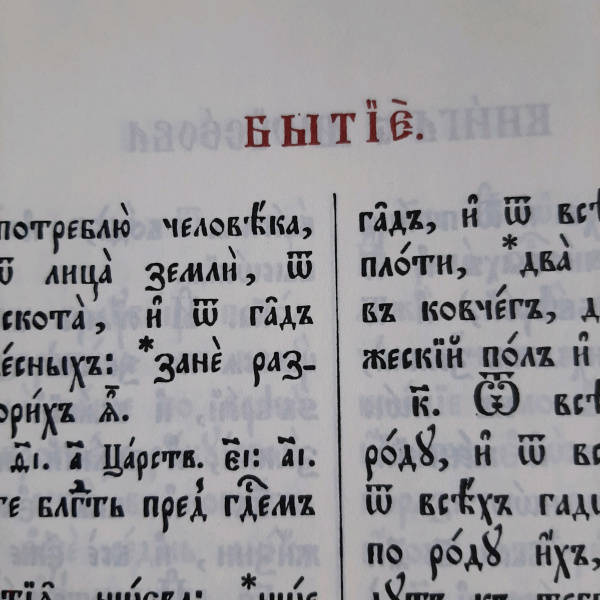 БЫТІѐ.
потреблю̀ человѣ́ка,
ѿ лица̀ землѝ, ѿ
скота̀, и҆ ѿ га̑дъ
е́сныхъ: *занѐ раз-
ори́хъ ѧ҆̀.
д҃і. а҃ Ца́рств. є҃і: а҃і.
те блг҃ть пред̾ гдⷭ҇емъ
га̑дъ, и҆ ѿ всѣ́
пло́ти, *два̀
въ ковче́гъ, д
жескїй по́лъ и҆
к҃. Ѿ всѣ́
ро́дꙋ, и҆ ѿ вс
ѿ всѣ́хъ гади
по ро́дꙋ и҆́хъ,